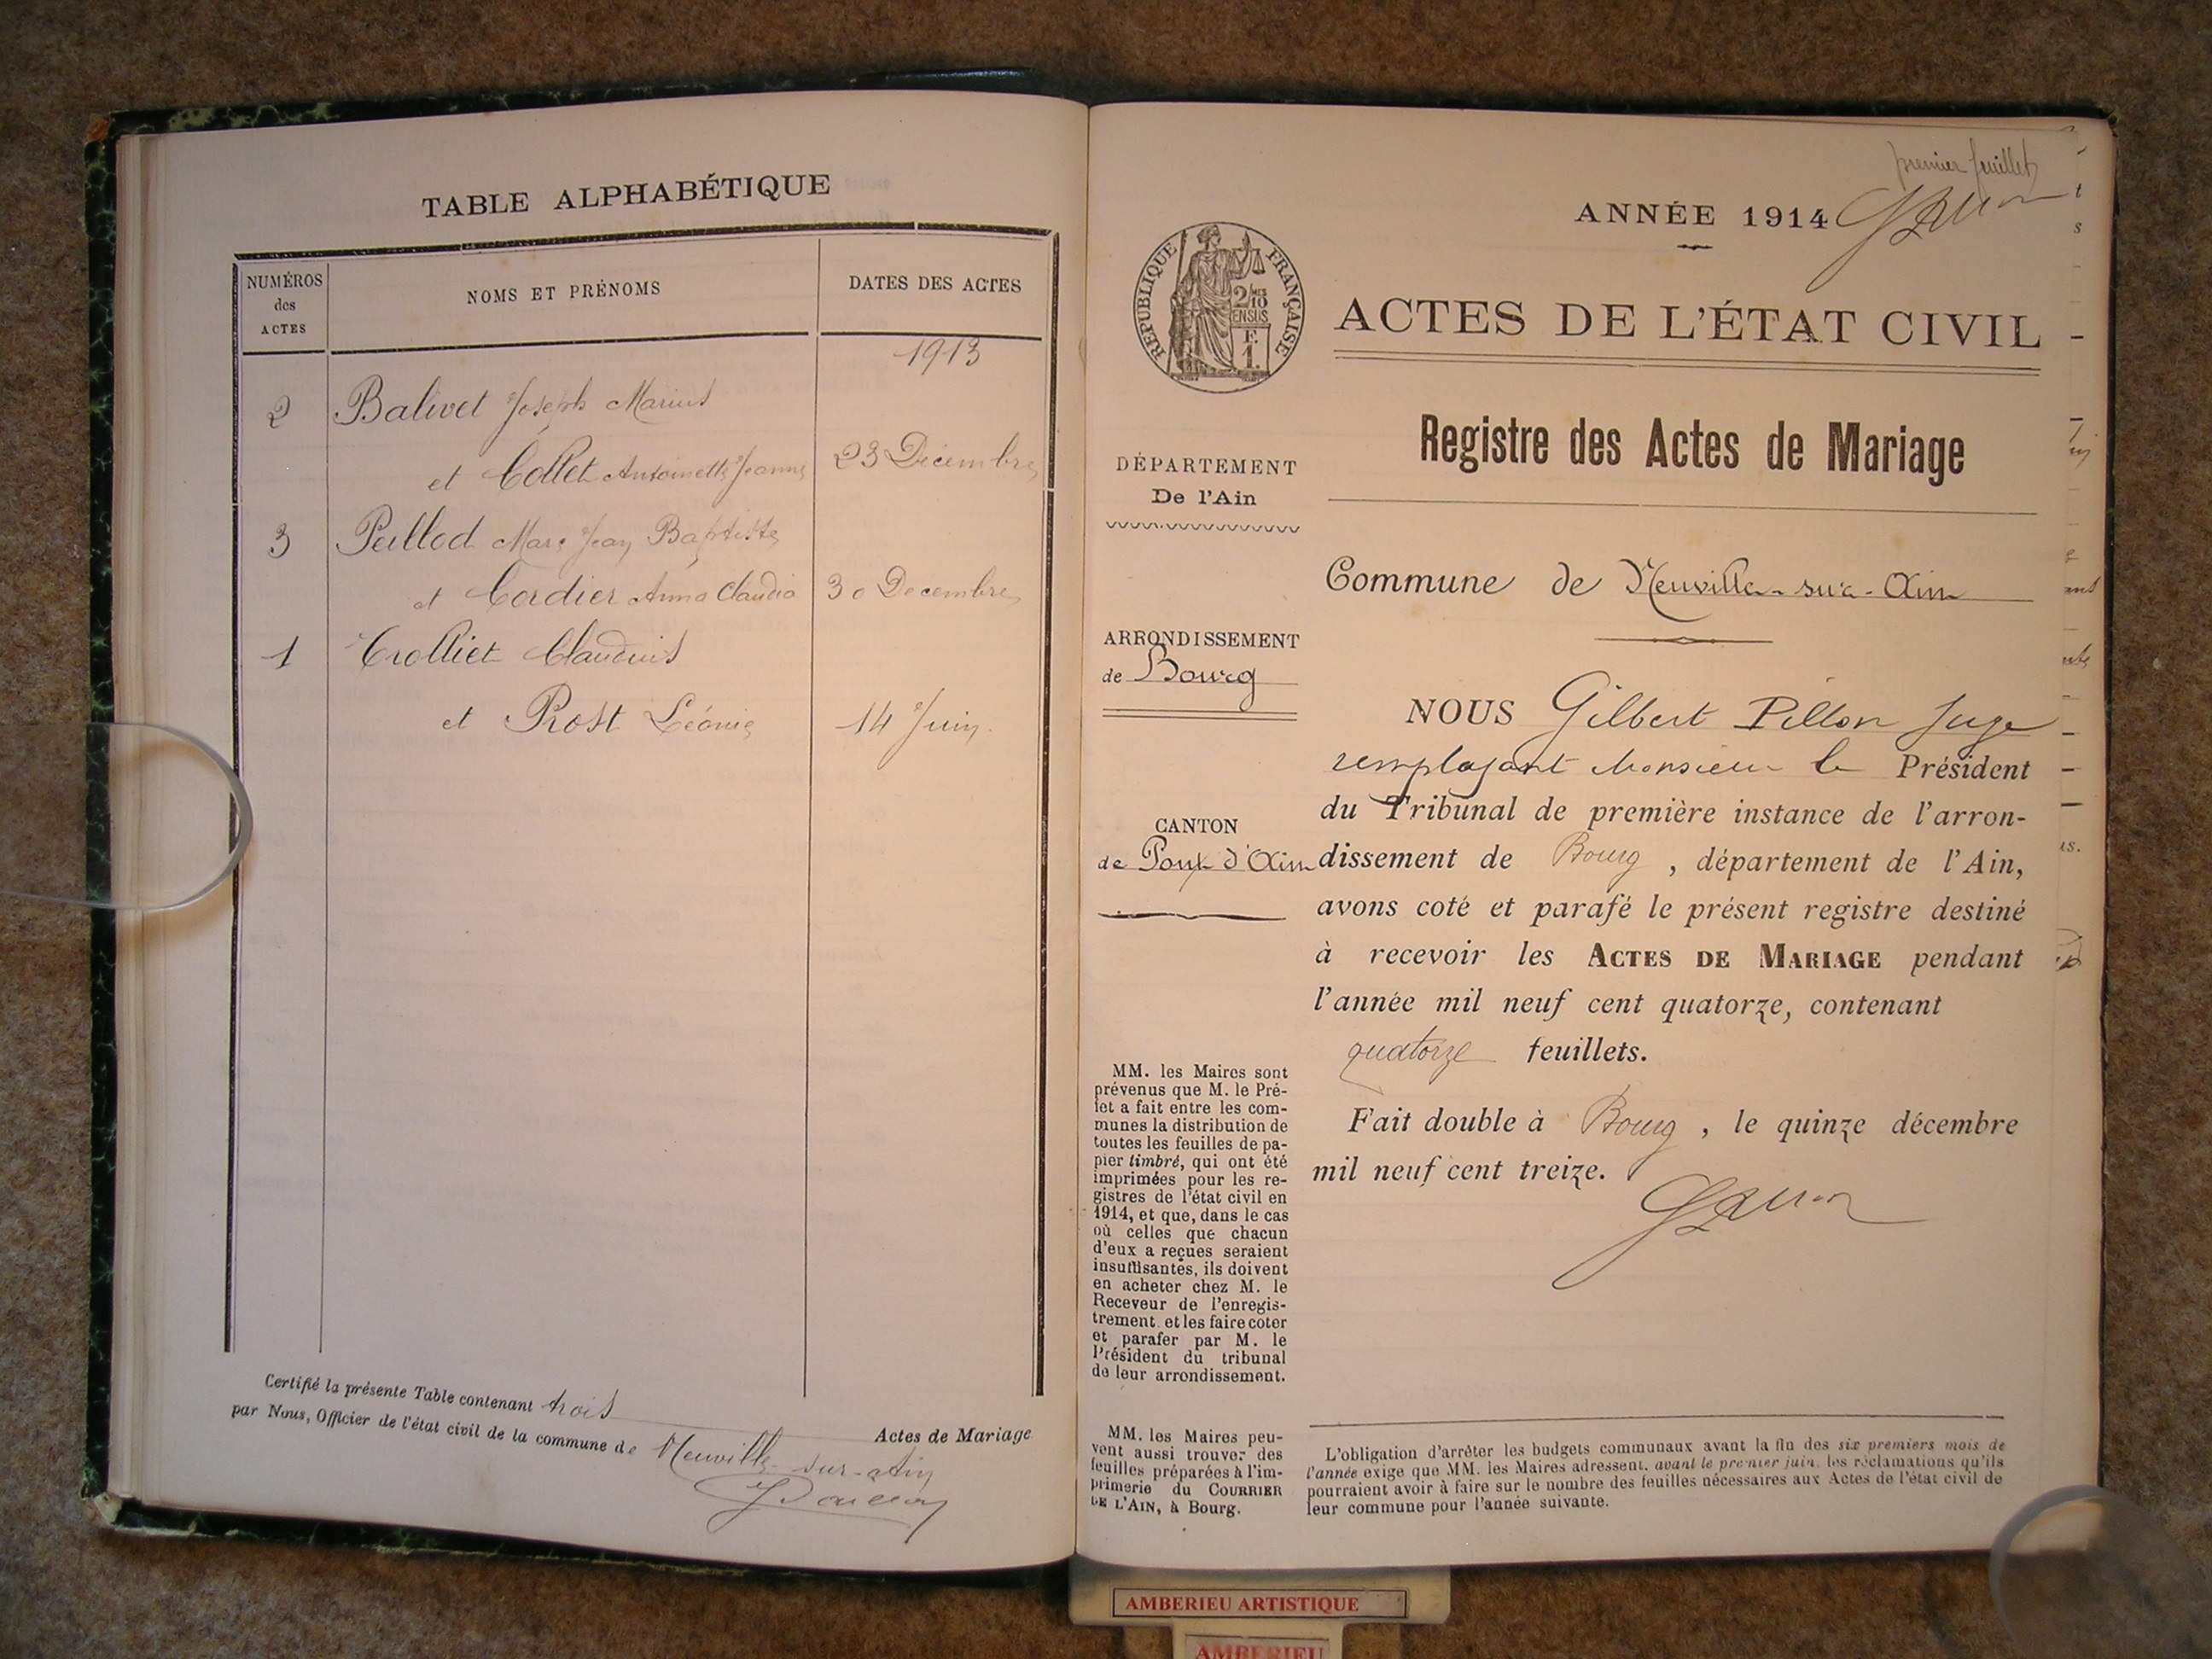 TABLE ALPHABÉTIQUE
NUMÉROS
des
ACTES
NOMS ET PRÉNOMS
DATES DES ACTES
1913
2 Balivet Joseph Marius
et Collet Antoinette Jeanne 23 Décembre
3 Paillod Marc Jean Baptiste
et Cordier Anna Claudia 30 Decembre
1 Trolliet Claudius
et Prost Léonie 14 Juin
Certifié la présente Table contenant trois
Actes de Mariage
par Nous, Officier de l'état civil de la commune de Neuville-sur-Ain
premier feuillet
ANNÉE 1914
RÉPUBLIQUE FRANÇAISE
2/10
EN SUS
F.
1.
ACTES DE L'ÉTAT CIVIL
Registre des Actes de Mariage
DÉPARTEMENT
De l'Ain
Commune de Neuville-sur-Ain
ARRONDISSEMENT
de Bourg
CANTON
de Pont d'Ain
NOUS Gilbert Pillon Juge
remplaçant Monsieur le Président
du Tribunal de première instance de l'arron-
dissement de Bourg, département de l'Ain,
avons coté et parafé le présent registre destiné
à recevoir les ACTES DE MARIAGE pendant
l'année mil neuf cent quatorze, contenant
quatorze feuillets.
Fait double à Bourg, le quinze décembre
mil neuf cent treize.
MM. les Maires sont
prévenus que M. le Pré-
fet a fait entre les com-
munes la distribution de
toutes les feuilles de pa-
pier timbré, qui ont été
imprimées pour les re-
gistres de l'état civil en
1914, et que, dans le cas
où celles que chacun
d'eux a reçues seraient
insuffisantes, ils doivent
en acheter chez M. le
Receveur de l'enregis-
trement et les faire coter
et parafer par M. le
Président du tribunal
de leur arrondissement.
MM. les Maires peu-
vent aussi trouver des
feuilles préparées à l'im-
primerie du COURRIER
DE L'AIN, à Bourg.
L'obligation d'arrêter les budgets communaux avant la fin des six premiers mois de
l'année exige que MM. les Maires adressent, avant le premier juin, les réclamations qu'ils
pourraient avoir à faire sur le nombre des feuilles nécessaires aux Actes de l'état civil de
leur commune pour l'année suivante.
AMBERIEU ARTISTIQUE
AMBERIEU